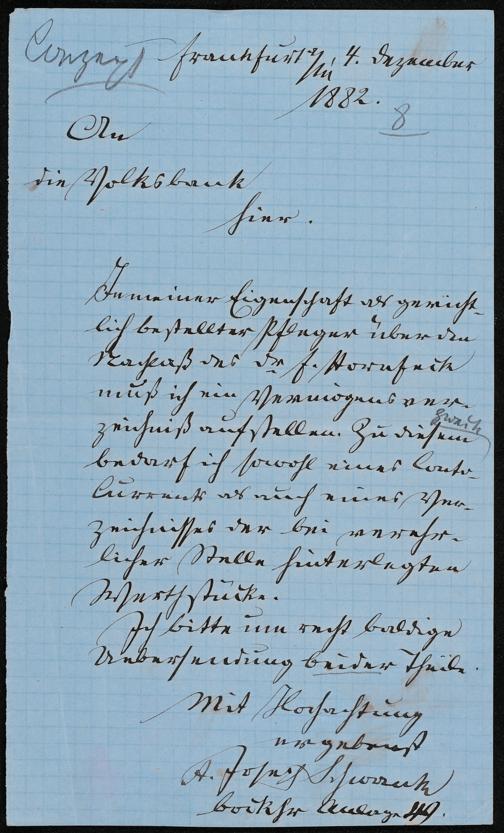 Conzept
Frankfurt a/M, 4. Dezember
1882.
8
An
die Volksbank
hier.
In meiner Eigenschaft als gericht-
lich bestellter Pfleger über den
Nachlaß des Dr. F. Hornfeck
muß ich ein Vermögensver-
zeichniß aufstellen. Zu diesem
Zweck
bedarf ich sowohl eines Conto-
Currents als auch eines Ver-
zeichnisses der bei verehr-
licher Stelle hinterlegten
Werthstücke.
Ich bitte um recht baldige
Uebersendung beider Theile.
Mit Hochachtung
ergebenst
A. Joseph Schwank
Bockhr Anlage 49.